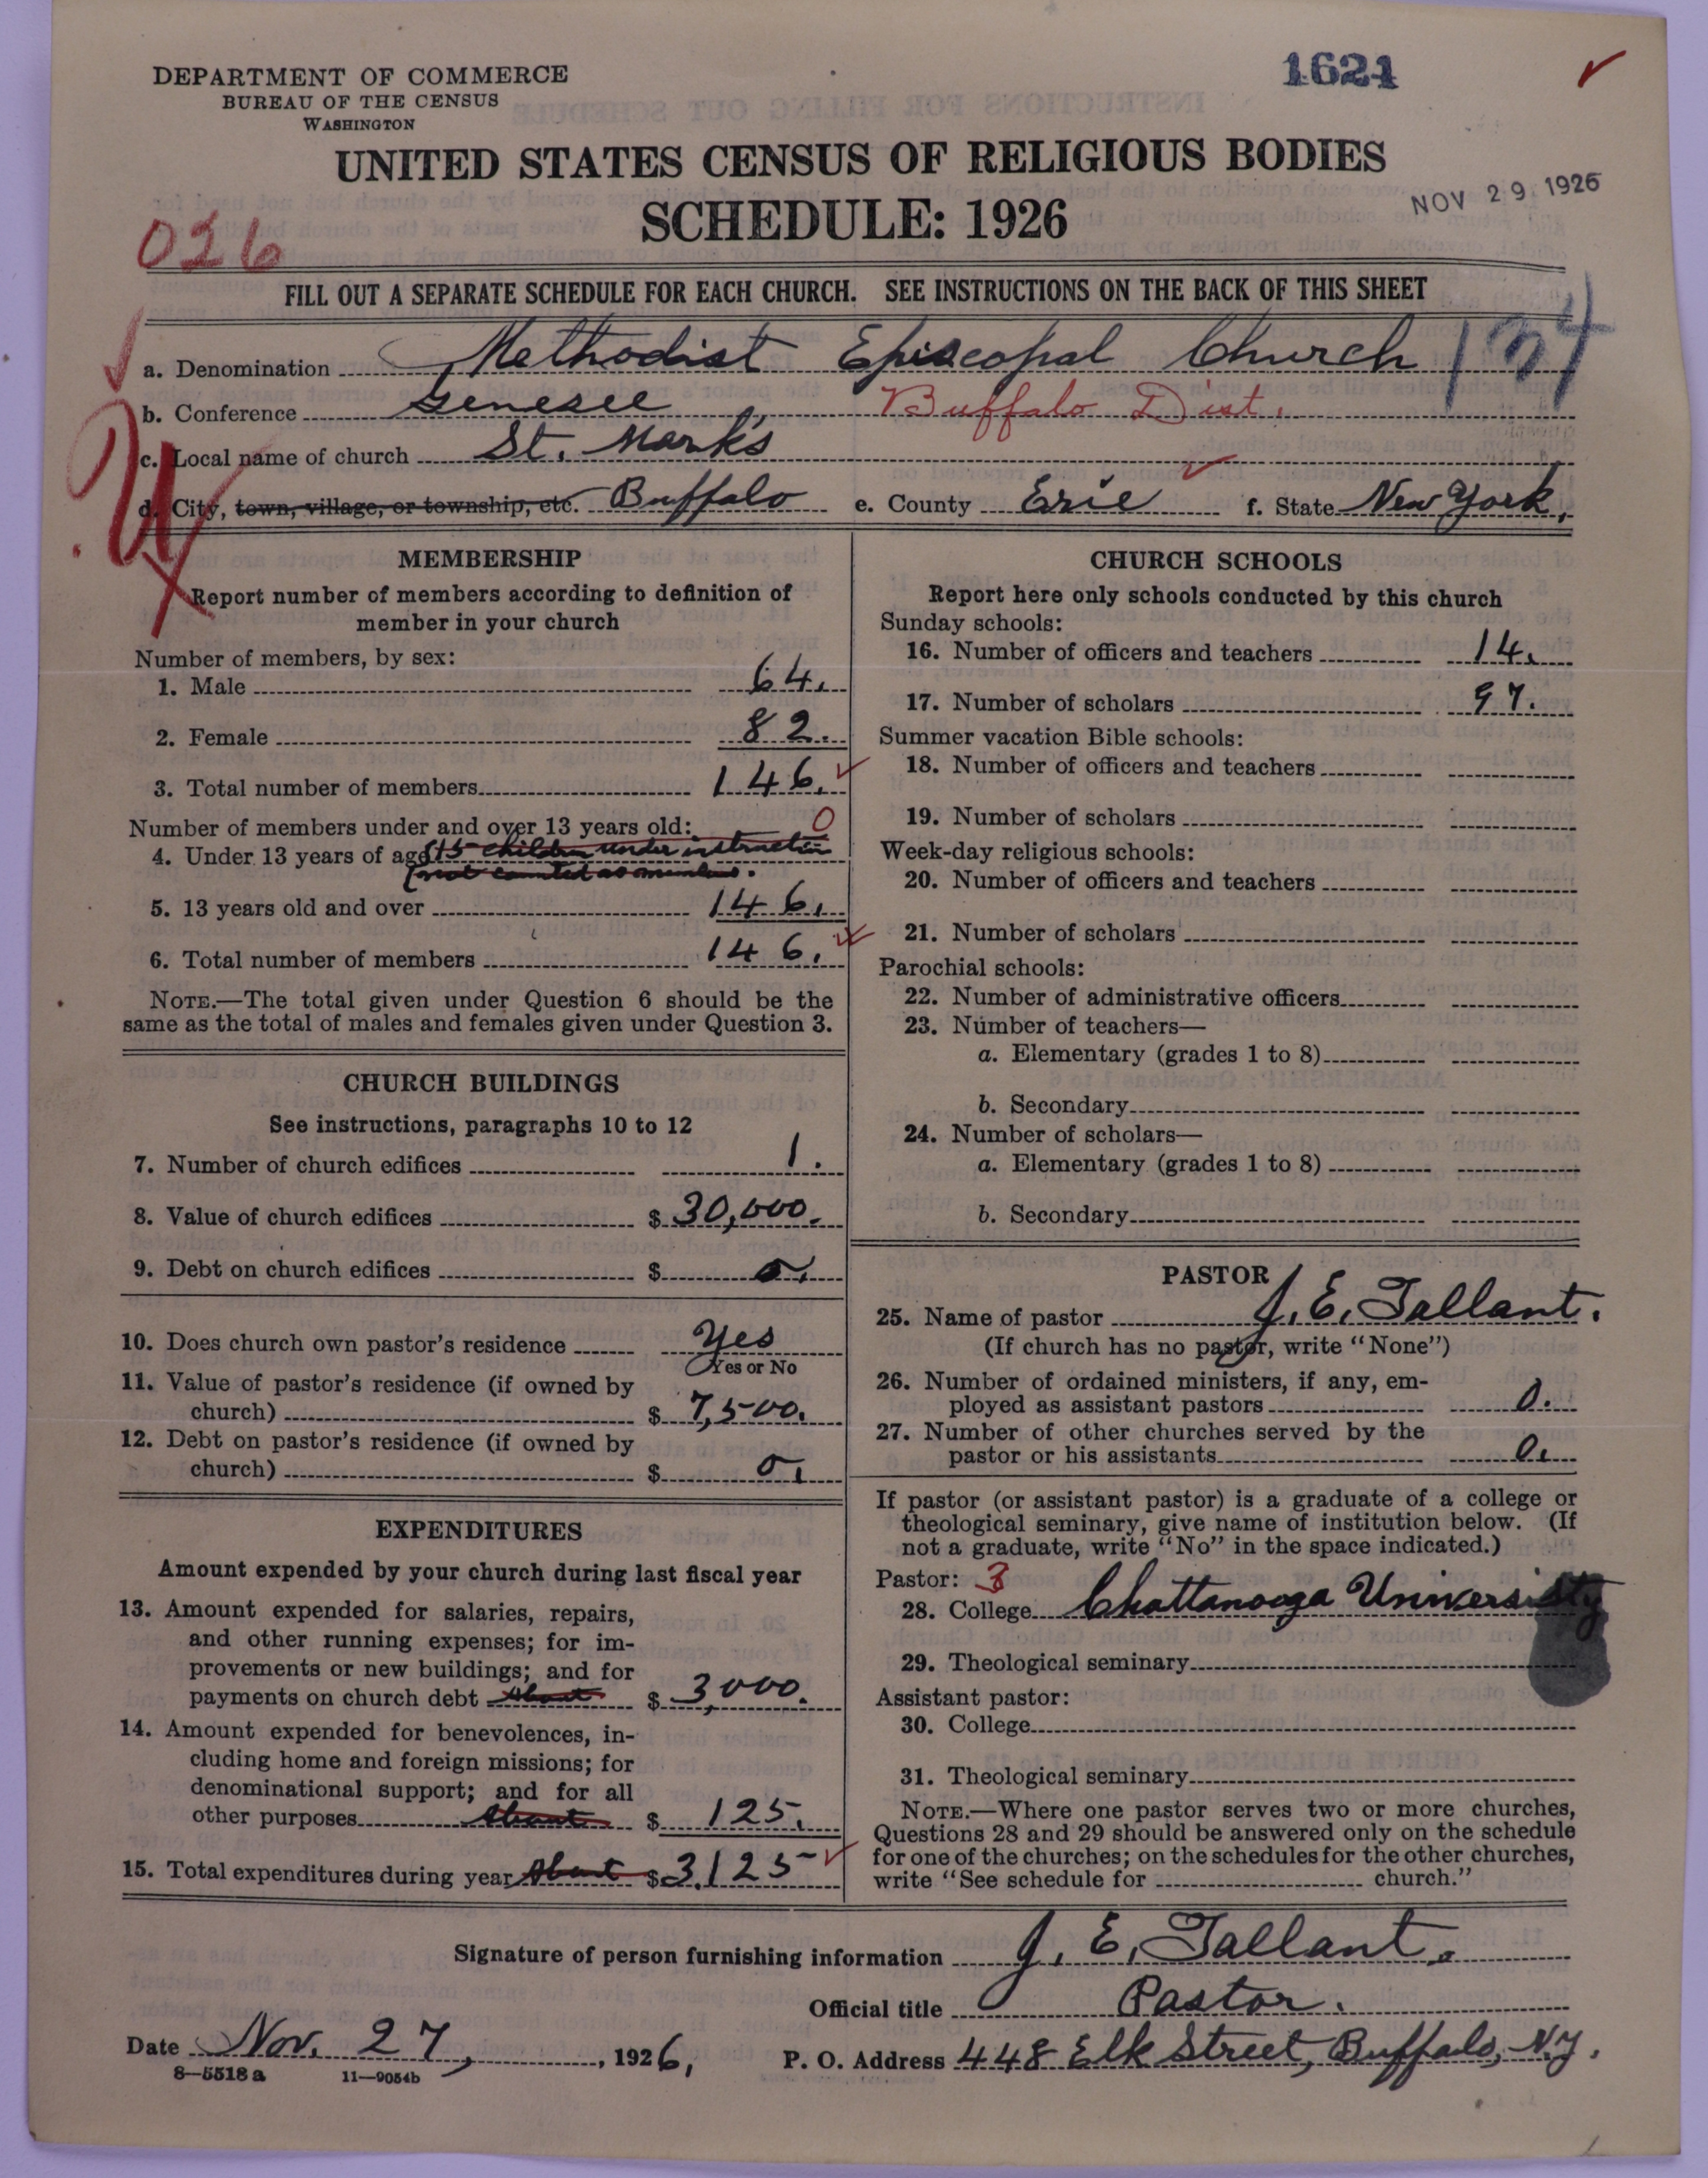 DEPARTMENT OF COMMERCE
BUREAU OF THE CENSUS
WASHINGTON
1621
UNITED STATES CENSUS OF RELIGIOUS BODIES
SCHEDULE: 1926
NOV 29 1926
026
FILL OUT A SEPARATE SCHEDULE FOR EACH CHURCH. SEE INSTRUCTIONS ON THE BACK OF THIS SHEET
a. Denomination Methodist Episcopal Church
b. Conference Genesee, Buffalo Dist.
c. Local name of church St. Mark's
d. City, town, village, or township, etc. Buffalo e. County Erie f. State New York,
MEMBERSHIP
Report number of members according to definition of
member in your church
Number of members, by sex:
1. Male 64.
2. Female 82.
3. Total number of members 146.
Number of members under and over 13 years old: 0
4. Under 13 years of age (15 children under instruction
(not counted as members.
5. 13 years old and over 146.
6. Total number of members 146.
NOTE.—The total given under Question 6 should be the
same as the total of males and females given under Question 3.
CHURCH BUILDINGS
See instructions, paragraphs 10 to 12
7. Number of church edifices 1.
8. Value of church edifices $ 30,000.
9. Debt on church edifices $ 0.
10. Does church own pastor's residence Yes
Yes or No
11. Value of pastor's residence (if owned by
church) $ 7,500.
12. Debt on pastor's residence (if owned by
church) $ 0.
EXPENDITURES
Amount expended by your church during last fiscal year
13. Amount expended for salaries, repairs,
and other running expenses; for im-
provements or new buildings; and for
payments on church debt About $ 3,000.
14. Amount expended for benevolences, in-
cluding home and foreign missions; for
denominational support; and for all
other purposes About $ 125.
15. Total expenditures during year About $ 3,125
CHURCH SCHOOLS
Report here only schools conducted by this church
Sunday schools:
16. Number of officers and teachers 14.
17. Number of scholars 97.
Summer vacation Bible schools:
18. Number of officers and teachers
19. Number of scholars
Week-day religious schools:
20. Number of officers and teachers
21. Number of scholars
Parochial schools:
22. Number of administrative officers
23. Number of teachers—
a. Elementary (grades 1 to 8)
b. Secondary
24. Number of scholars—
a. Elementary (grades 1 to 8)
b. Secondary
PASTOR
25. Name of pastor J. E. Tallant.
(If church has no pastor, write "None")
26. Number of ordained ministers, if any, em-
ployed as assistant pastors 0.
27. Number of other churches served by the
pastor or his assistants 0.
If pastor (or assistant pastor) is a graduate of a college or
theological seminary, give name of institution below. (If
not a graduate, write "No" in the space indicated.)
Pastor: 3
28. College Chattanooga University
29. Theological seminary
Assistant pastor:
30. College
31. Theological seminary
NOTE.—Where one pastor serves two or more churches,
Questions 28 and 29 should be answered only on the schedule
for one of the churches; on the schedules for the other churches,
write "See schedule for church."
Signature of person furnishing information J. E. Tallant.
Official title Pastor.
Date Nov. 27, 1926,
P. O. Address 448 Elk Street, Buffalo, N.Y.
8—5518a 11—9054b